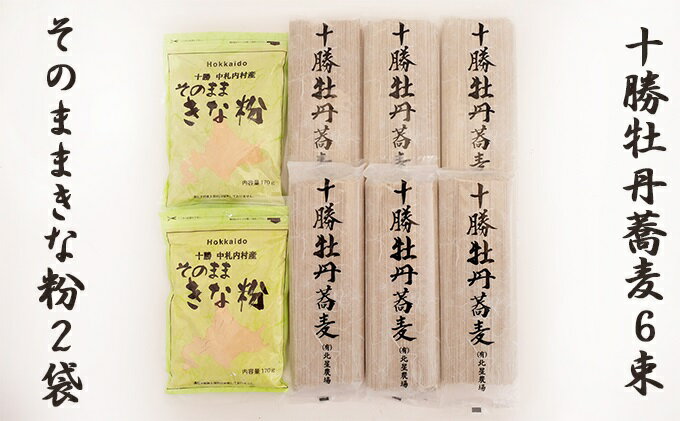 十勝牡丹蕎麦6束
十勝牡丹蕎麦
十勝牡丹蕎麦
十勝牡丹蕎麦
十勝牡丹蕎麦
(有)北星農場
十勝牡丹蕎麦
(有)北星農場
十勝牡丹蕎麦
(有)北星農場
Hokkaido
十勝 中札内村産
そのまま
きな粉
内容量170g
Hokkaido
十勝 中札内村産
そのまま
きな粉
内容量170g
そのままきな粉2袋